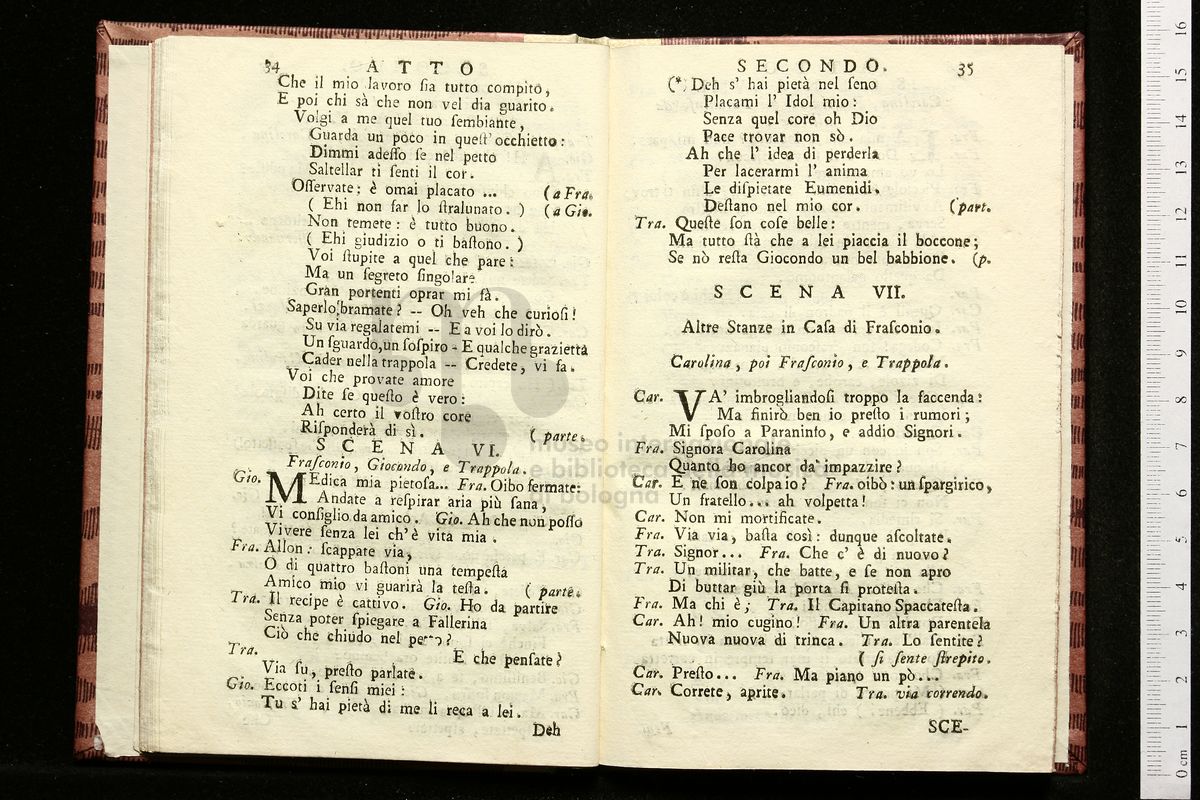 34 ATTO
Che il mio lavoro ſia tutto compito,
E poi chi sà che non vel dia guarito.
Volgi a me quel tuo ſembiante,
Guarda un poco in queſt' occhietto:
Dimmi adeſſo ſe nel petto
Saltellar ti ſenti il cor.
Oſſervate: è omai placato ... (a Fra.
( Ehi non far lo ſtralunato. ) (a Gio.
Non temete: è tutto buono.
( Ehi giudizio o ti baſtono. )
Voi ſtupite a quel che pare:
Ma un ſegreto ſingolare
Gran portenti oprar mi fà.
Saperlo bramate? -- Oh veh che curioſi!
Su via regalatemi -- E a voi lo dirò.
Un ſguardo, un ſoſpiro - E qualche grazietta
Cader nella trappola -- Credete, vi fa.
Voi che provate amore
Dite ſe queſto è vero:
Ah certo il voſtro core
Riſponderà di sì. ( parte.
SCENA VI.
Fraſconio, Giocondo, e Trappola.
Gio. MEdica mia pietoſa... Fra. Oibo fermate:
Andate a reſpirar aria più ſana,
Vi conſiglio da amico. Gio. Ah che non poſſo
Vivere ſenza lei ch' è vita mia.
Fra. Allon: ſcappate via,
O di quattro baſtoni una tempeſta
Amico mio vi guarirà la teſta. ( parte.
Tra. Il recipe è cattivo. Gio. Ho da partire
Senza poter ſpiegare a Fallerina
Ciò che chiudo nel petto?
Tra. E che penſate?
Via ſu, preſto parlate.
Gio. Eccoti i ſenſi miei:
Tu s' hai pietà di me li reca a lei.
Deh
SECONDO. 35
(* Deh s' hai pietà nel ſeno
Placami l' Idol mio:
Senza quel core oh Dio
Pace trovar non sò.
Ah che l' idea di perderla
Per lacerarmi l' anima
Le diſpietate Eumenidi.
Deſtano nel mio cor. (part.
Tra. Queſte ſon coſe belle:
Ma tutto ſtà che a lei piaccia il boccone;
Se nò reſta Giocondo un bel babbione. (p.
SCENA VII.
Altre Stanze in Caſa di Fraſconio.
Carolina, poi Fraſconio, e Trappola.
Car. VA' imbrogliandoſi troppo la faccenda:
Ma finirò ben io preſto i rumori;
Mi ſpoſo a Paraninfo, e addio Signori.
Fra. Signora Carolina
Quanto ho ancor da' impazzire?
Car. E ne ſon colpa io? Fra. oibò: un ſpargirico,
Un fratello... ah volpetta!
Car. Non mi mortificate.
Fra. Via via, baſta così: dunque aſcoltate.
Tra. Signor... Fra. Che c' è di nuovo?
Tra. Un militar, che batte, e ſe non apro
Di buttar giù la porta ſi proteſta.
Fra. Ma chi è; Tra. Il Capitano Spaccateſta.
Car. Ah! mio cugino! Fra. Un altra parentela
Nuova nuova di trinca. Tra. Lo ſentite?
( ſi ſente ſtrepito.
Car. Preſto... Fra. Ma piano un pò...
Car. Correte, aprite. Tra. via correndo.
SCE-
museo internazionale
e biblioteca della musica
di bologna
0 cm 1 2 3 4 5 6 7 8 9 10 11 12 13 14 15 16